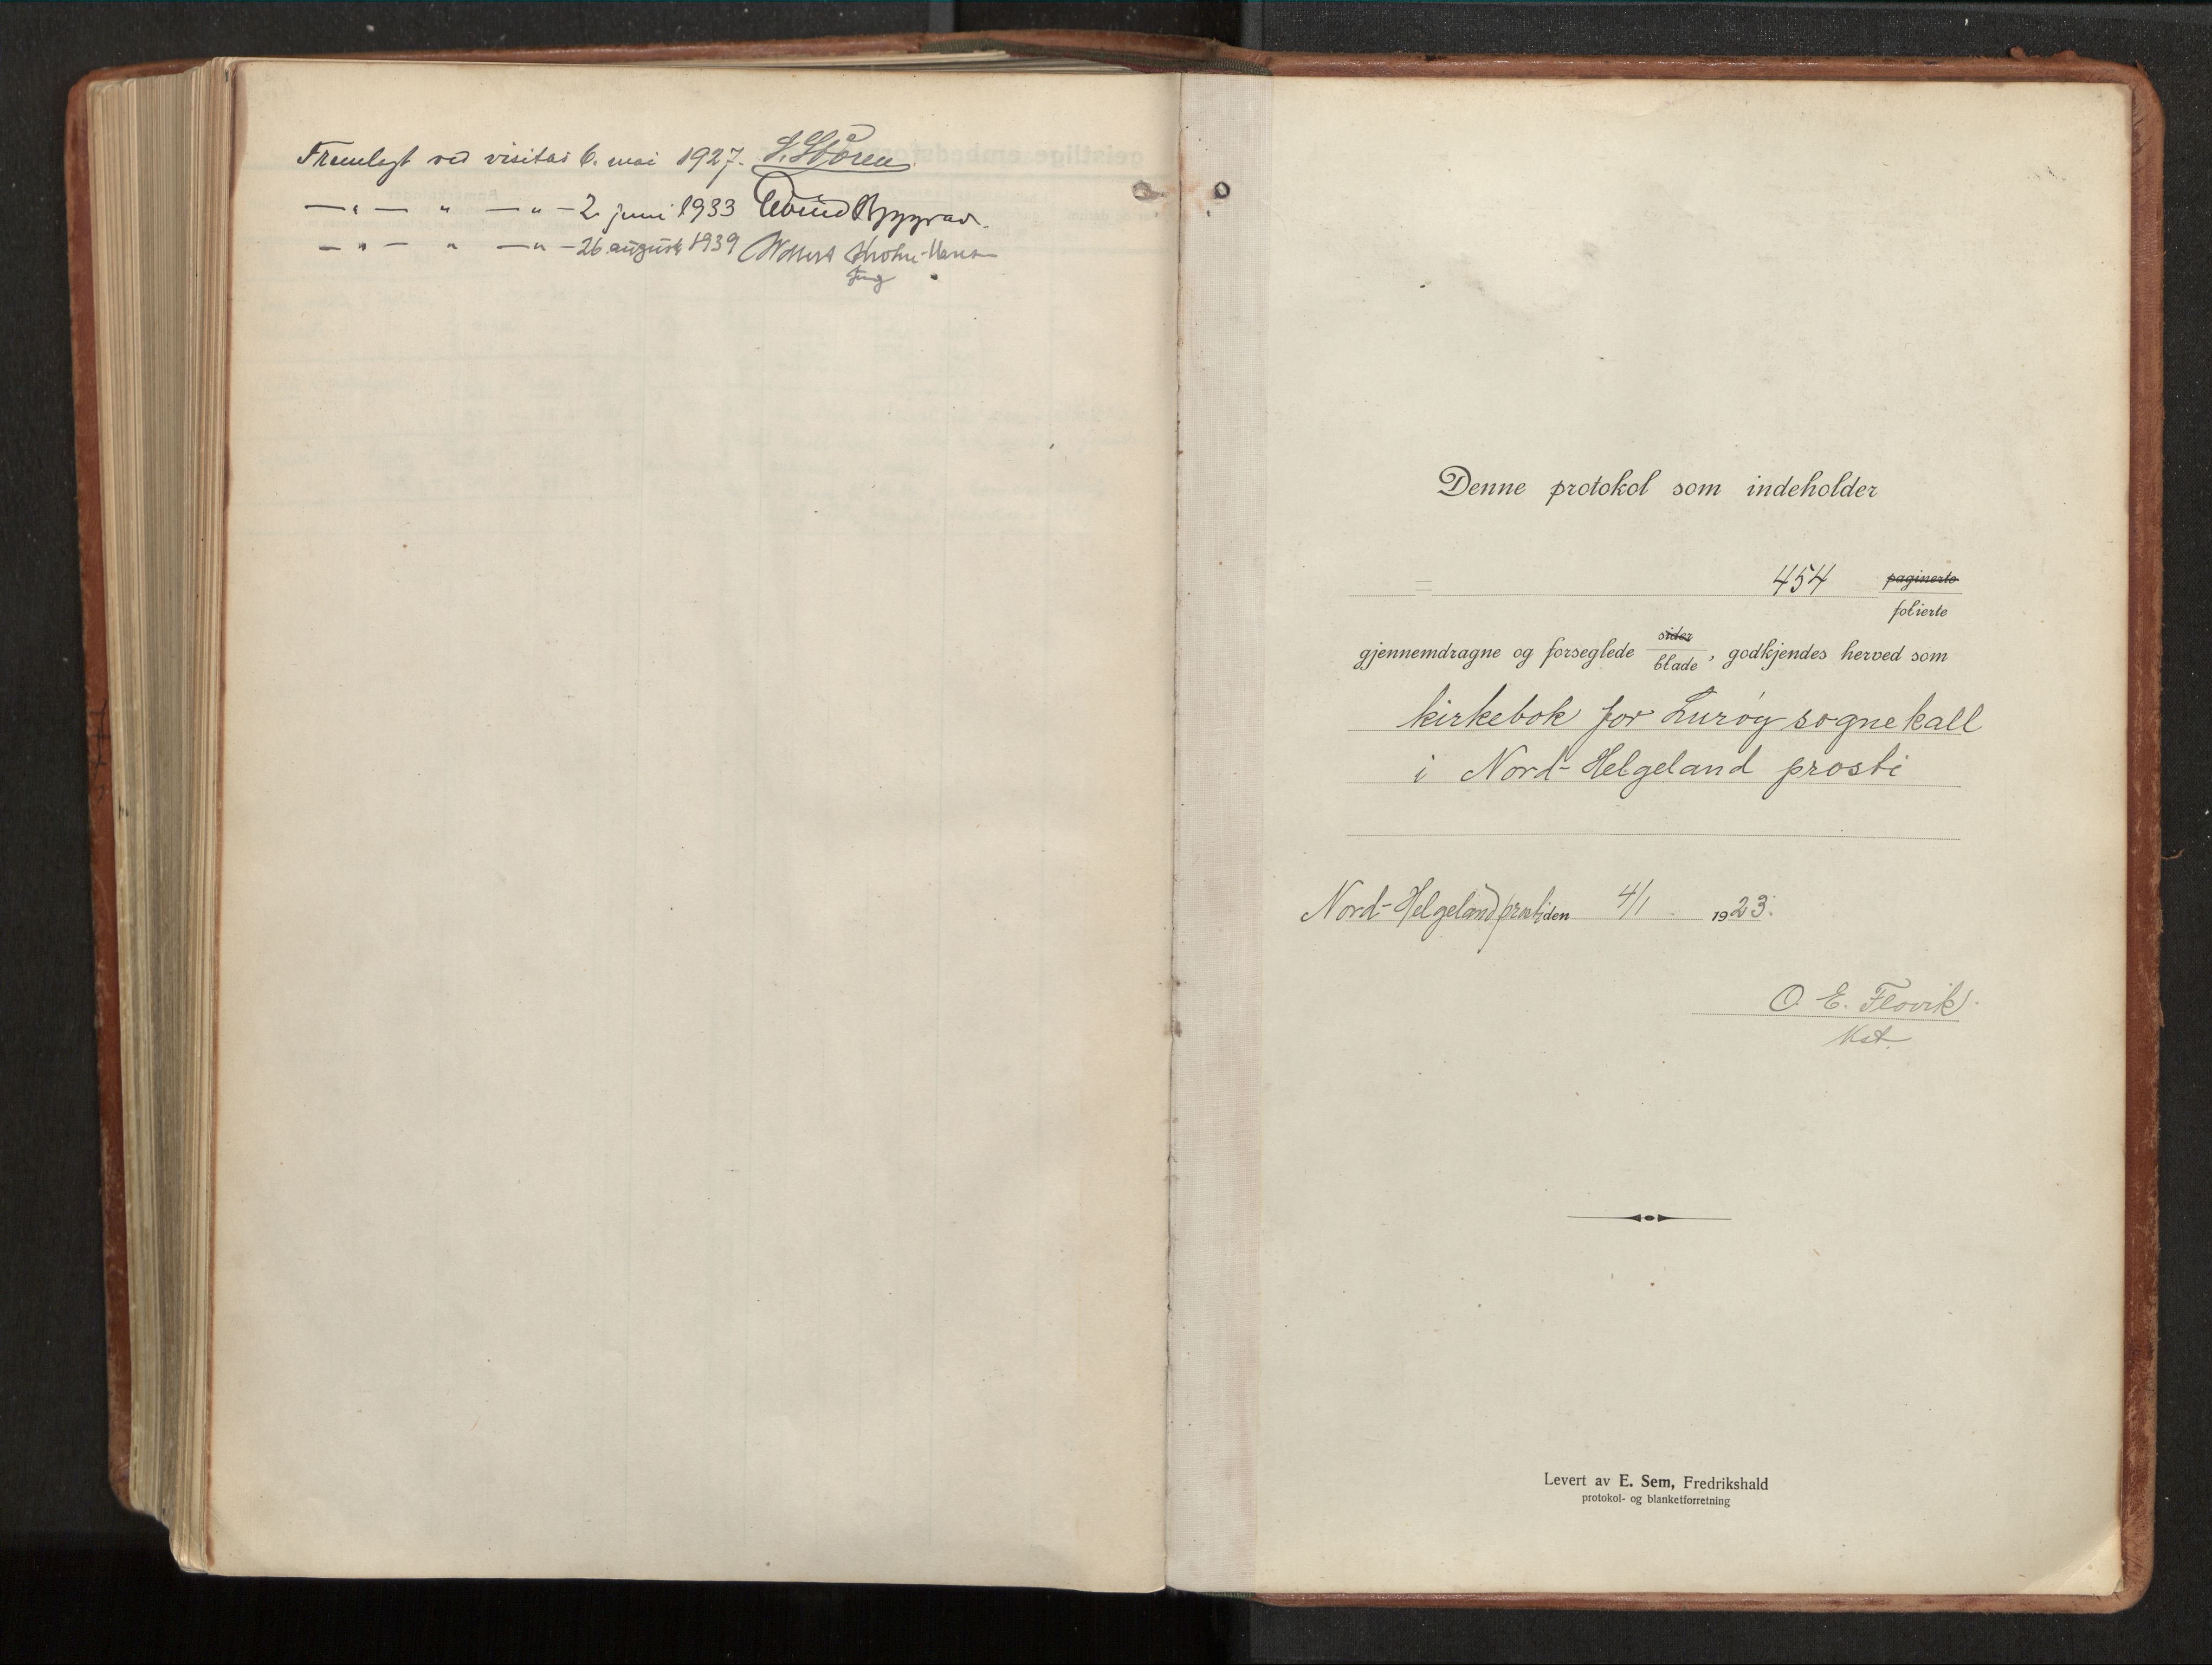 Fremlagt ved visitas 6. mai 1927. S. Støren.
— " — " — " — 2. juni 1933 Eivind Berggrav.
— " — " — " — 26. august 1939 Wollert Krohn-Hansen
Denne protokol som indeholder
= 454 paginerte
folierte
gjennemdragne og forseglede sider
blade, godkjendes herved som
kirkebok for Lurøy sognekall
i Nord-Helgeland prosti
Nord-Helgeland prosti den 4/1 1923.
O. E. Flovik.
Kst.
Levert av E. Sem, Fredrikshald
protokol- og blanketforretning